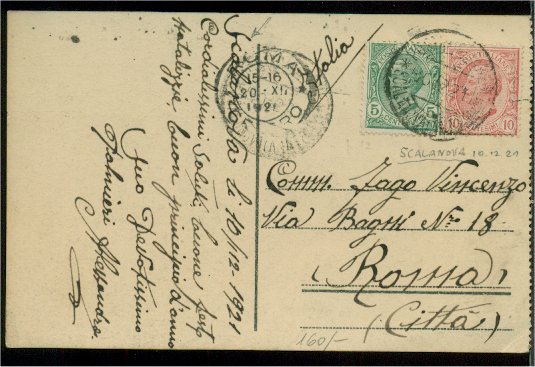 Scalanova li 10/12 1921
Cordialissimi Saluti, buone feste
Natalizie, buon principio d'anno
Suo Devotissimo
Palmieri Alessandro
Italia
ROMA
15-16
20 XII
1921
5
10
SCALANOVA 10.12.21
Comm. Jago Vincenzo
Via Bagni Nro 18
(Roma)
(Città)
160/-